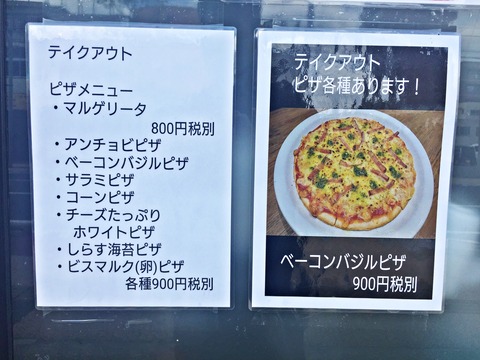 テイクアウト
ピザメニュー
・マルゲリータ
800円税別
・アンチョビピザ
・ベーコンバジルピザ
・サラミピザ
・コーンピザ
・チーズたっぷり
ホワイトピザ
・しらす海苔ピザ
・ビスマルク(卵)ピザ
各種900円税別
テイクアウト
ピザ各種あります！
ベーコンバジルピザ
900円税別